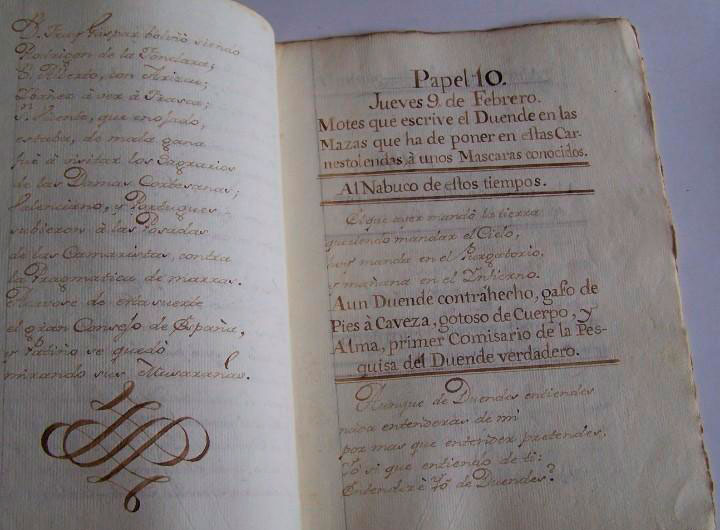 D. Fray Gaspar bolviò siendo
Rodrigon de la Fondara;
S. Alberto, con Arizac;
Ibañez à ver à Fravas;
S. Fuente, que enojado,
estaba, de mala gana
fuè à visitar los Sagrarios
de las Damas Cortesanas;
Valenciano, y Portugues
subieron à las Posadas
de las Camaristas, contra
la Pragmatica de marras.
Fuevose de esta suerte
el gran Consejo de España,
y Patiño se quedò
mirando sus Musarañas.
Papel 10.
Jueves 9. de Febrero.
Motes que escrive el Duende en las
Mazas que ha de poner en estas Car-
nestolendas, à unos Mascaras conocidos.
Al Nabuco de estos tiempos.
El que ayer mandò la tierra
queriendo mandar el Cielo,
hoy manda en el Purgatorio,
y mañana en el Infierno.
Aun Duende contrahecho, gafo de
Pies à Caveza, gotoso de Cuerpo, y
Alma, primer Comisario de la Pes-
quisa del Duende verdadero.
Aunque de Duendes entiendes
nada entenderàs de mi
por mas que entender pretendes,
Yo si que entiendo de ti:
Entenderè Yo de Duendes?